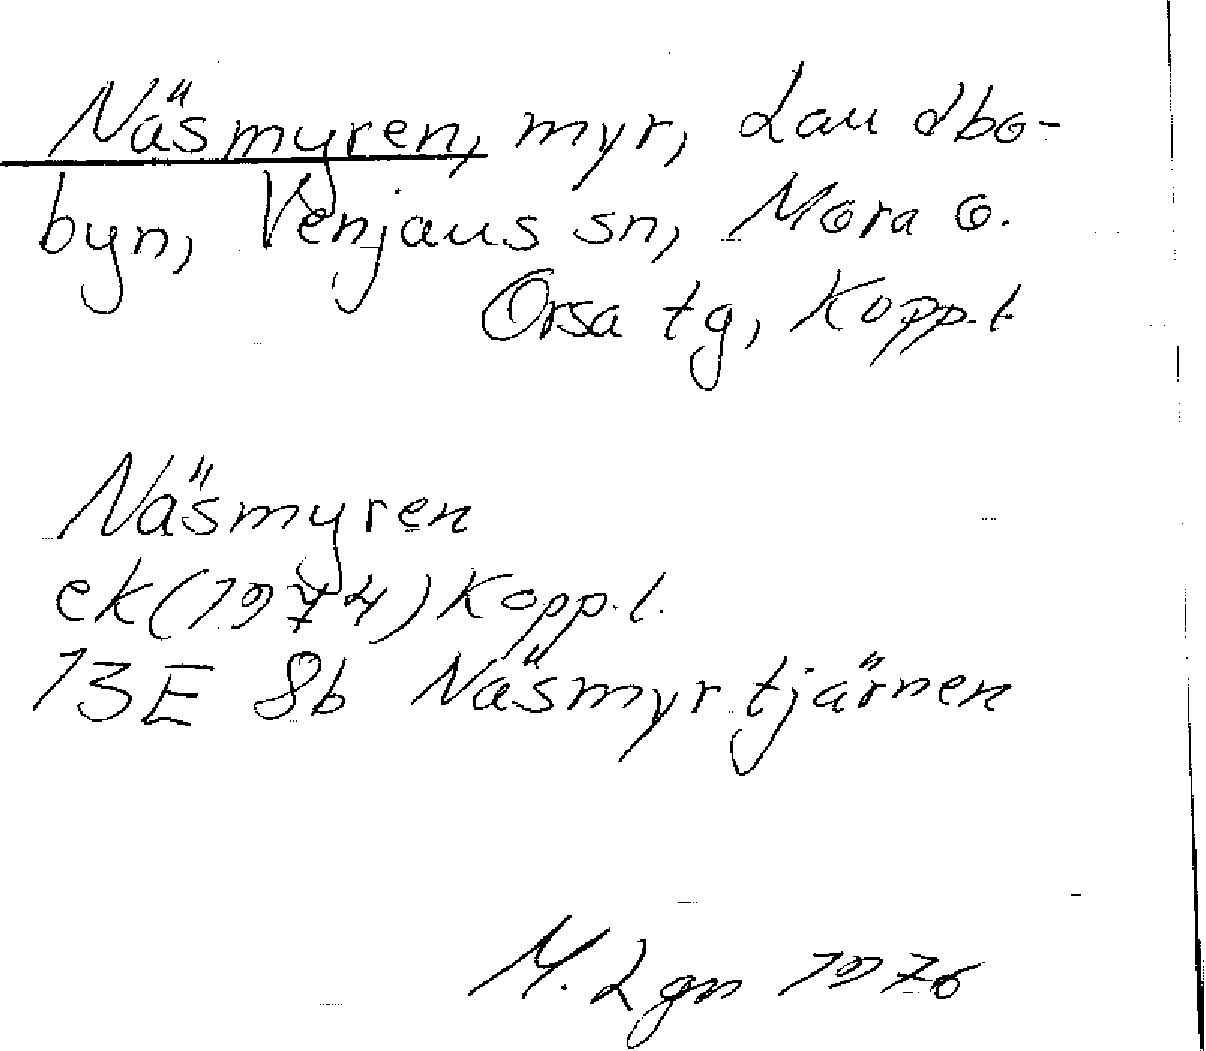 Näsmyren, myr, Landbo-
byn, Venjans sn, Mora o.
Orsa tg, Kopp.l.
Näsmyren
ek(1974) Kopp.l.
13E 8b Näsmyrtjärnen
M. Lgn 1976